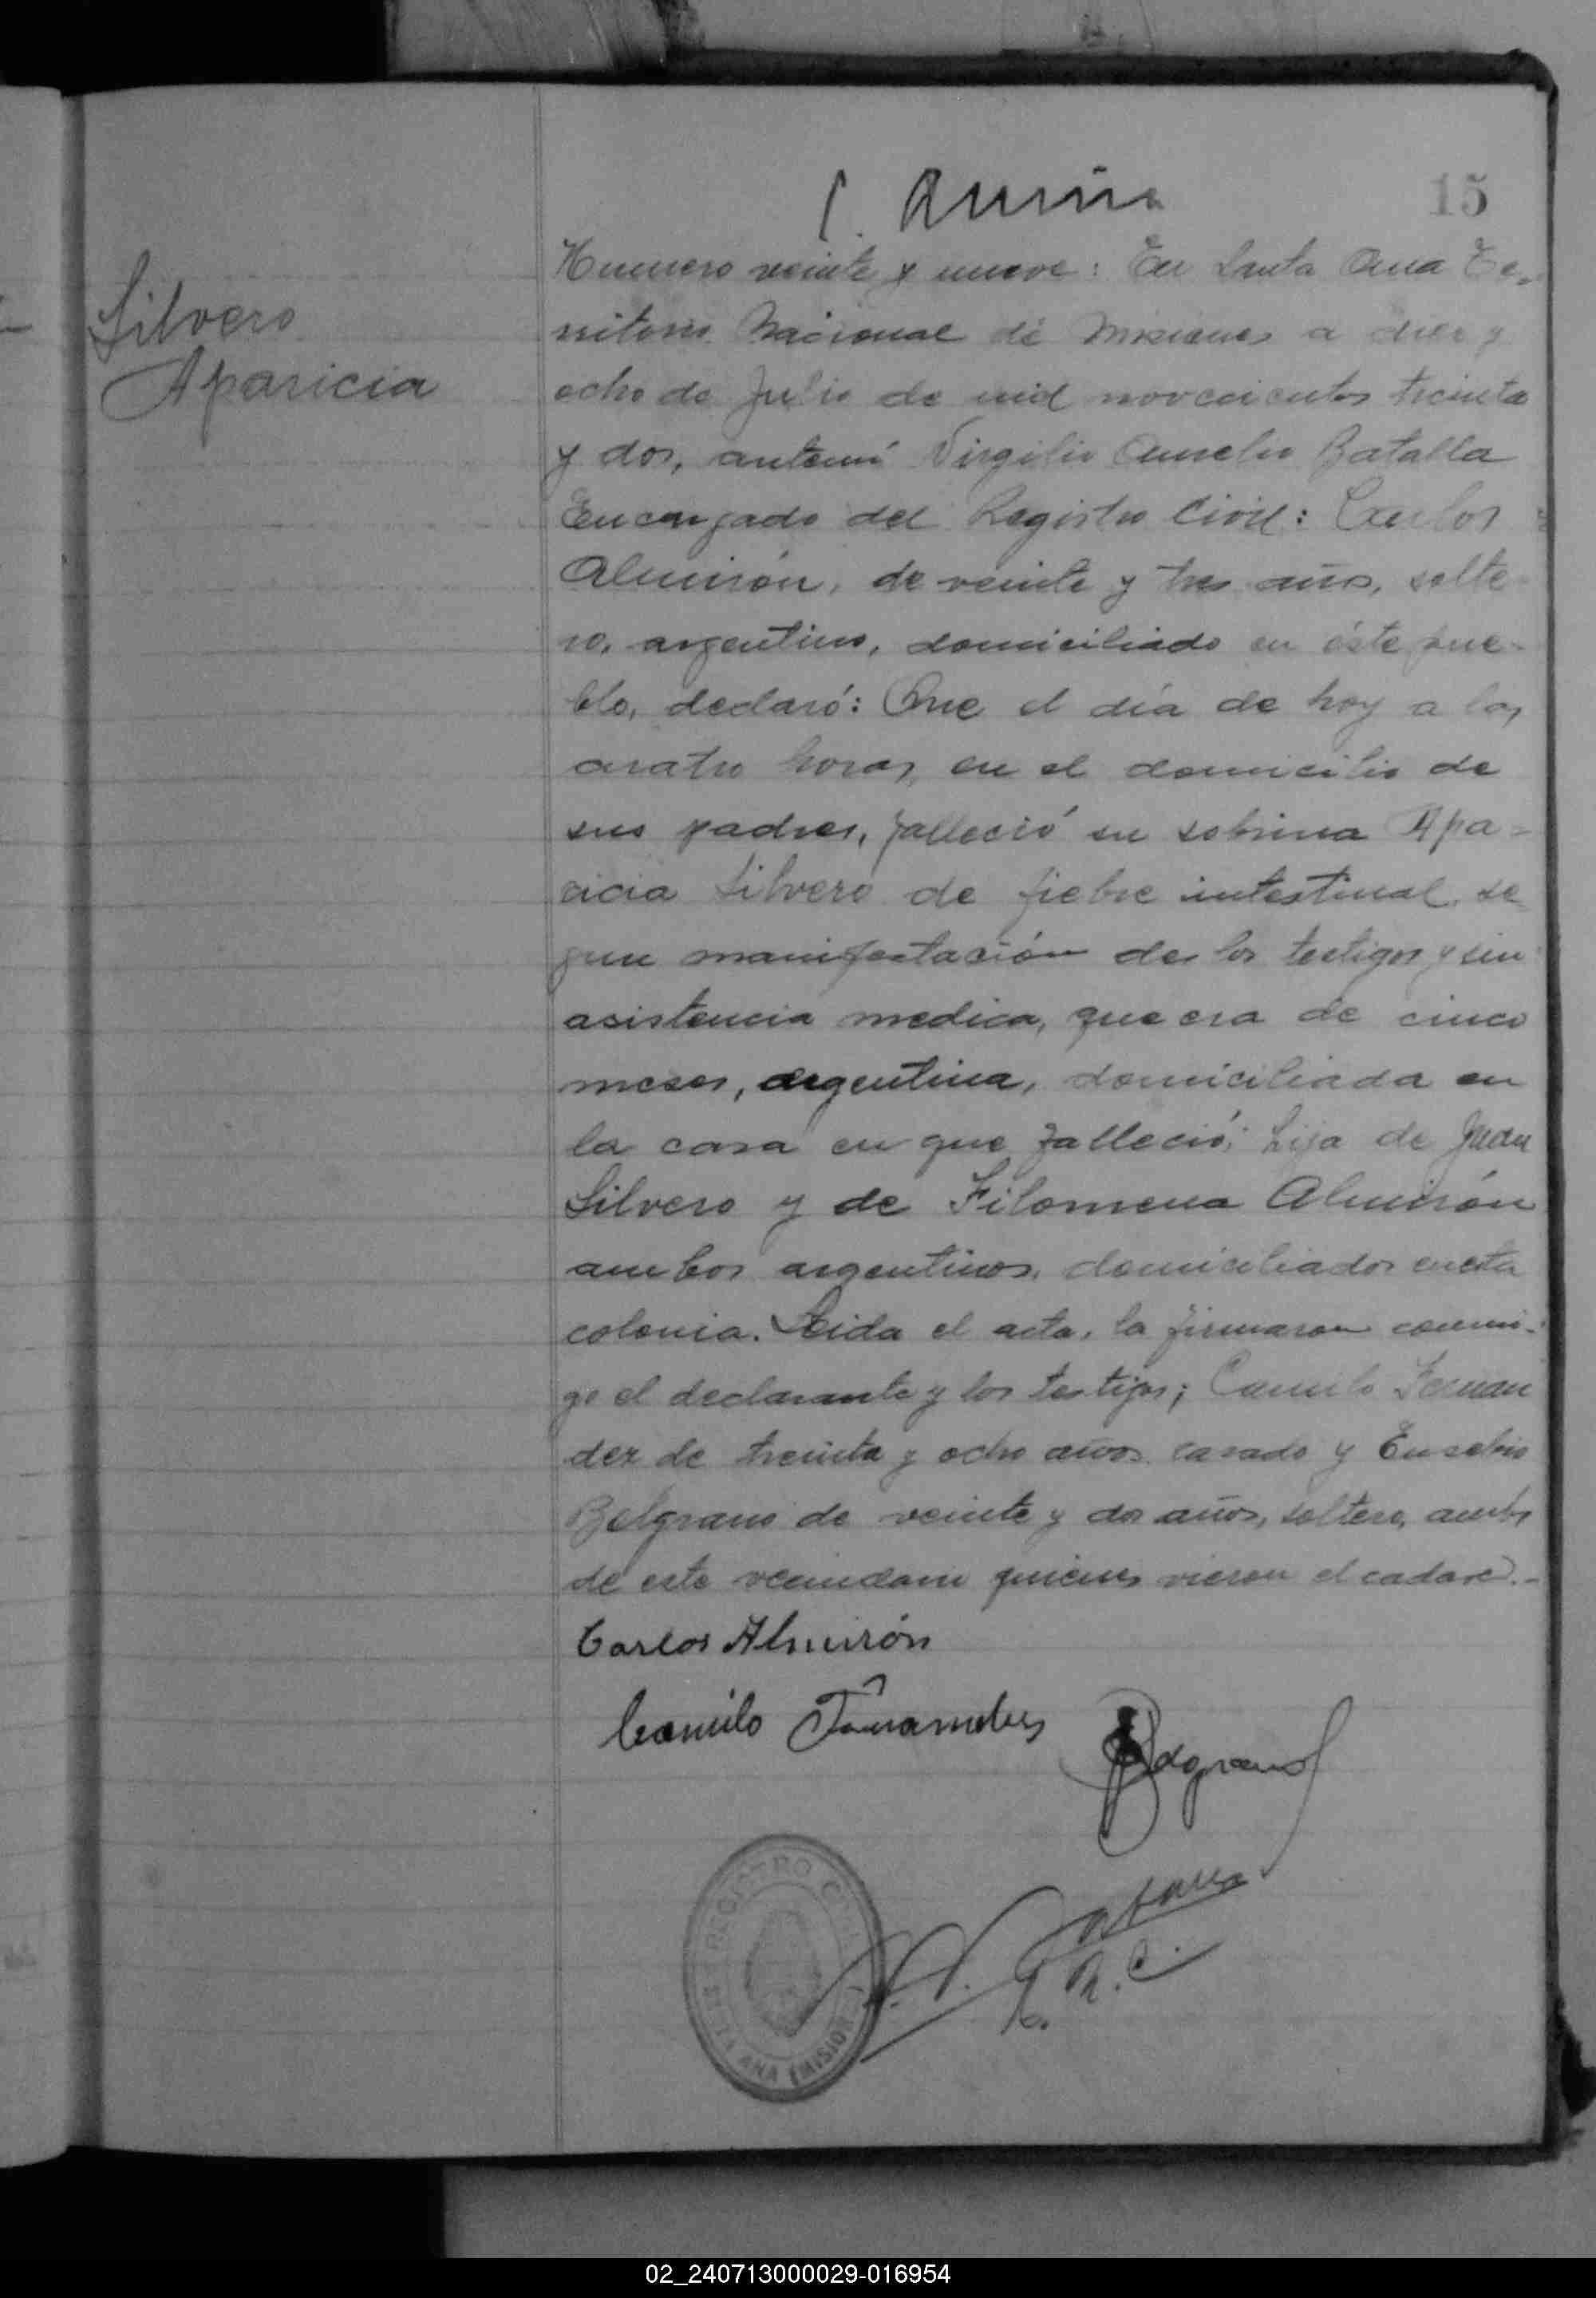 15
Silvero
Aparicia
Numero veinte y nueve: En Santa Ana Te-
rritorio Nacional de Misiones a diez y
ocho de Julio de mil novecientos treinta
y dos, antemí Virgilio Anselmo Batalla
Encargado del Registro Civil: Carlos
Almirón, de veinte y tres años, solte-
ro, argentino, domiciliado en éste pue-
blo, declaró: Que el día de hoy a las
cuatro horas, en el domicilio de
sus padres, falleció su sobrina Apa-
ricia Silvero de fiebre intestinal, se-
gun manifestación de los testigos y sin
asistencia medica, que era de cinco
meses, argentina, domiciliada en
la casa en que falleció; hija de Juan
Silvero y de Filomena Almirón
ambos argentinos, domiciliados en esta
colonia. Leida el acta, la firmaron conmi-
go el declarante y los testigos; Camilo Fernan
dez de treinta y ocho años casado y Eusebio
Belgrano de veinte y dos años, soltero, ambos
de este vecindario quienes vieron el cadaver.-
Carlos Almirón
Camilo Fernandez
Belgrano
REGISTRO CIVIL
SANTA ANA (MISIONES)
E. R. C.
02_240713000029-016954